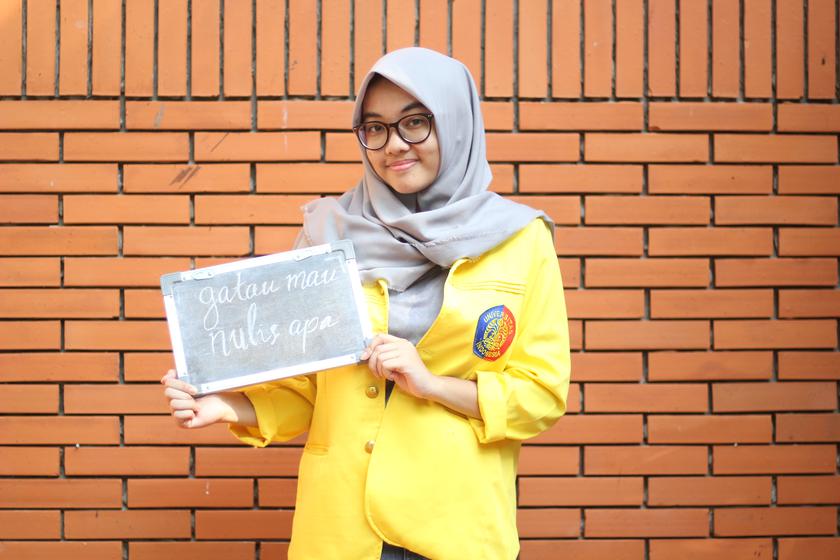 gatau mau
nulis apa
UNIVERSITAS
INDONESIA